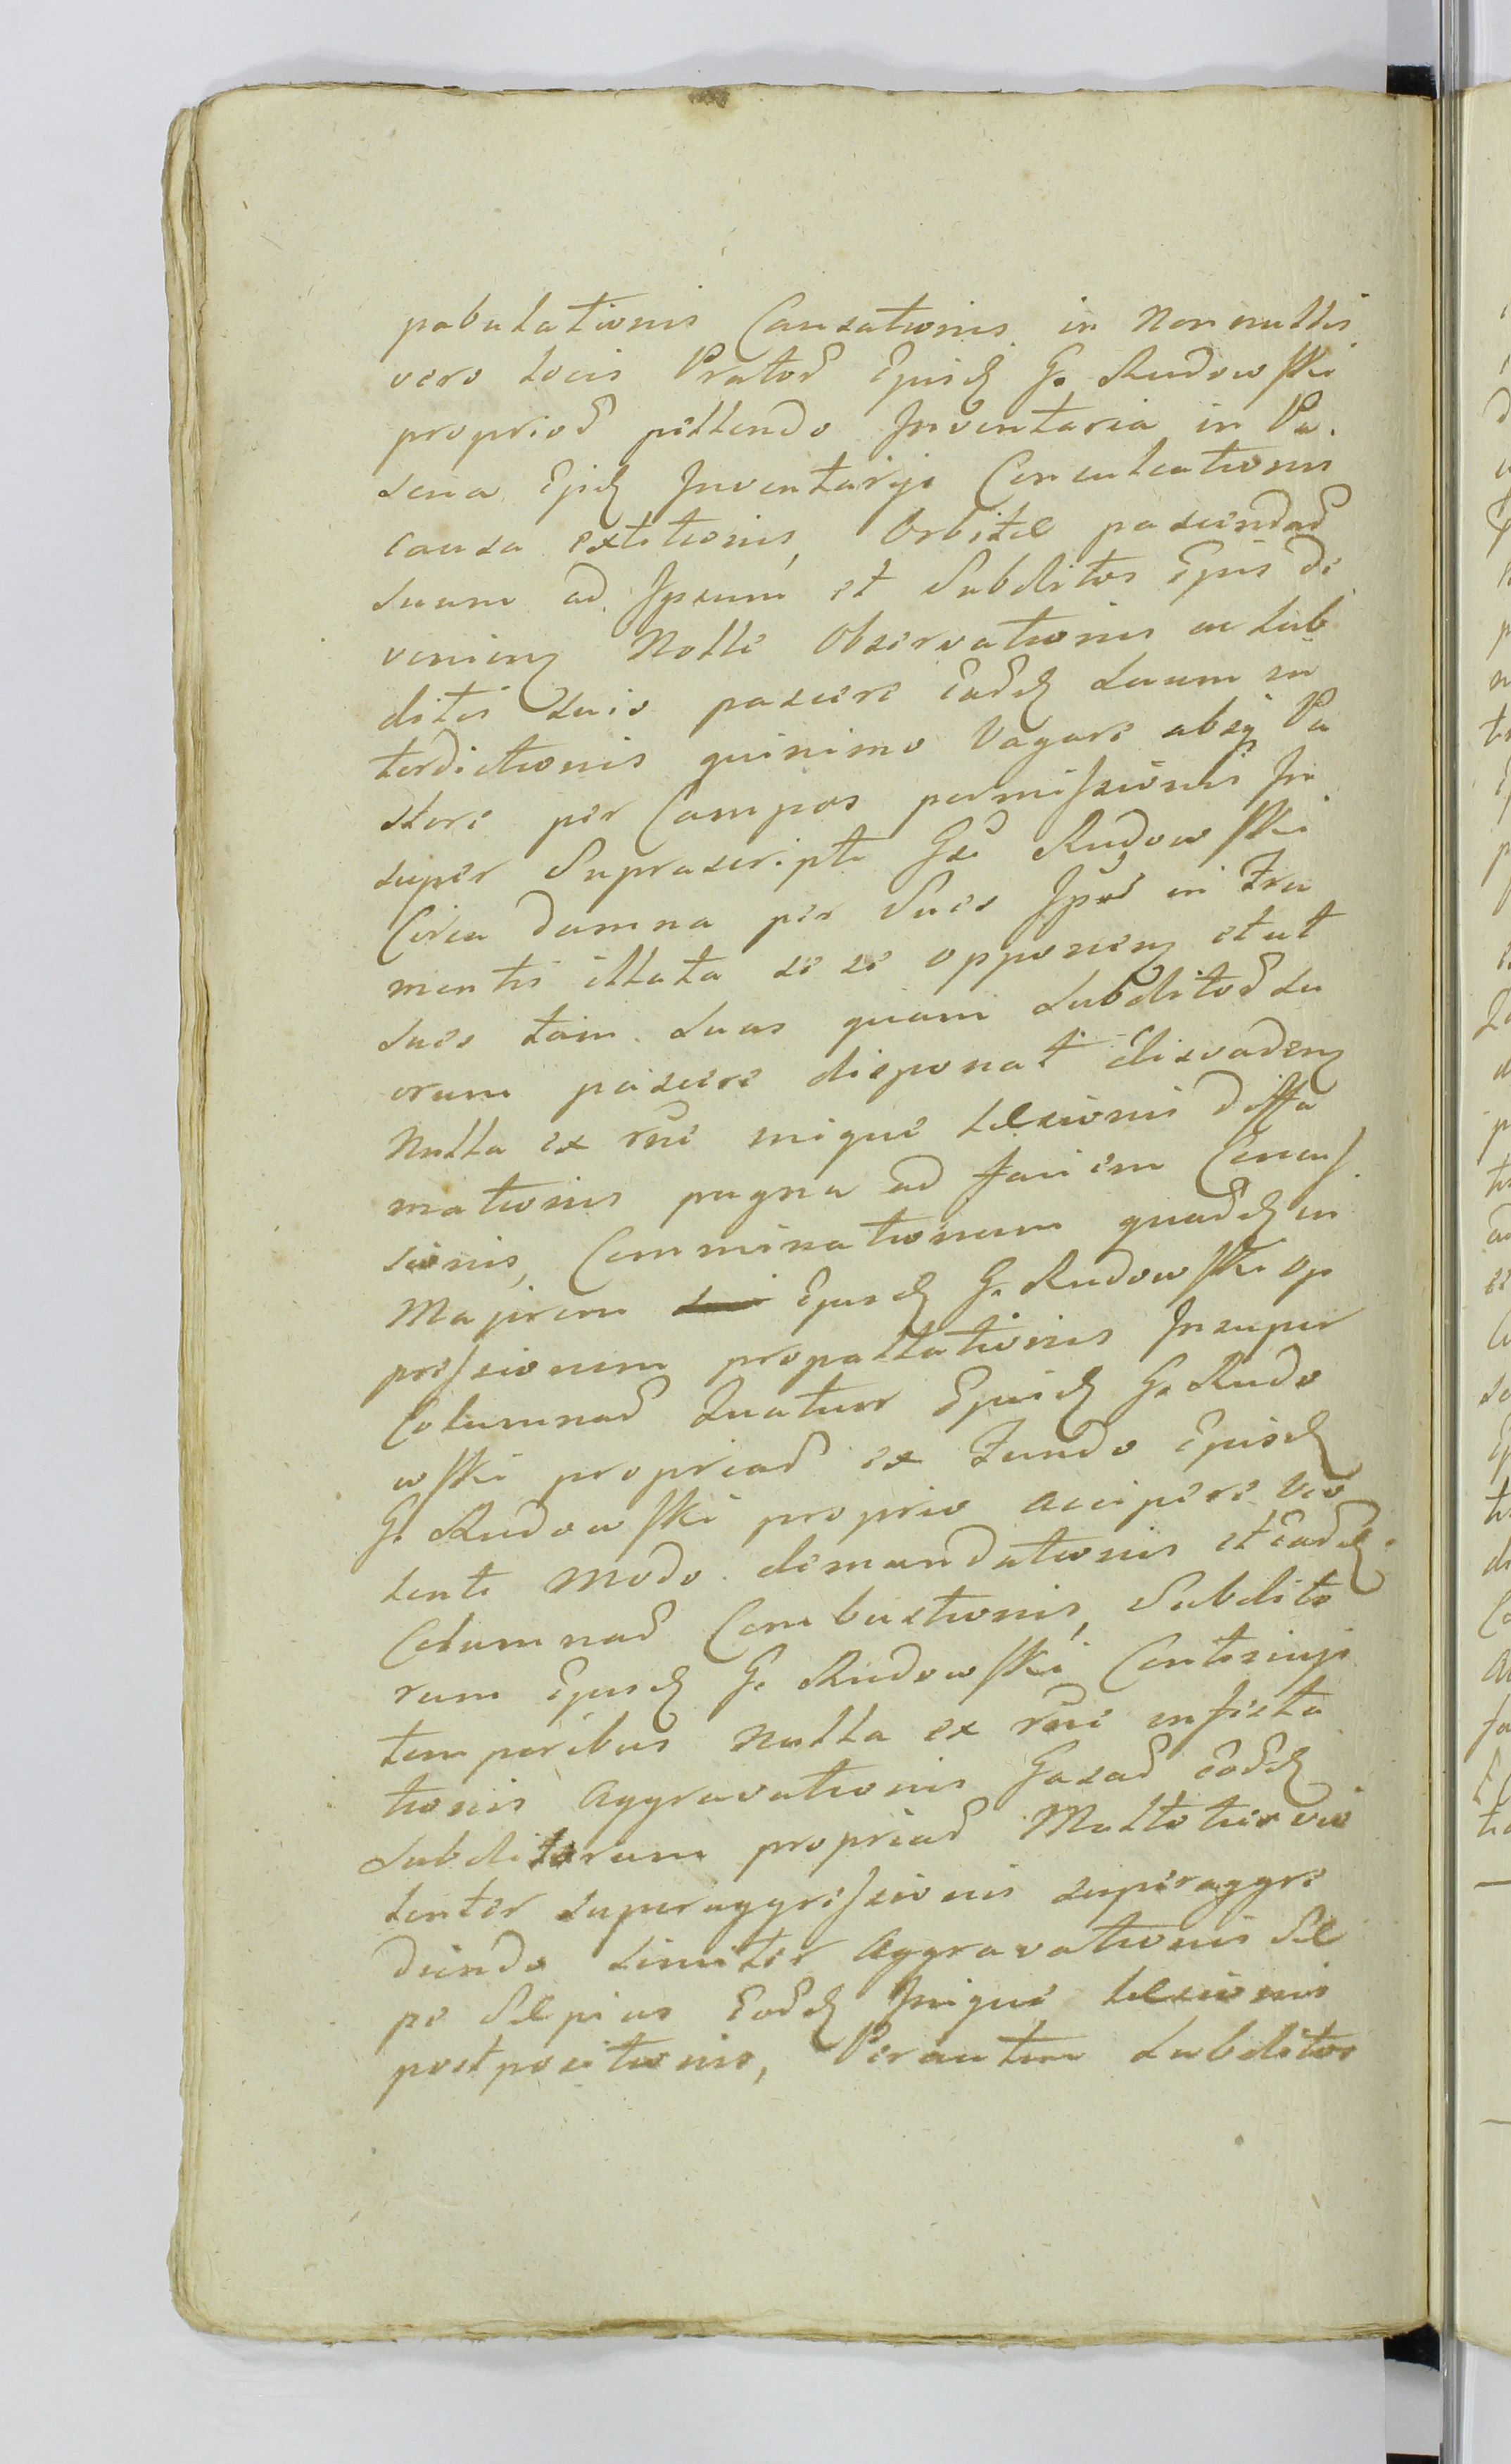 pabulationis Causationis in Nonnullis
vero locis Pratoꝝ Ejusdꝫ G. Rudowski
proprioꝝ pellendo Inventaria in Pa.
scua Ejdꝫ Inventarij Conculcationis
causa extitionis, Orbitæ pascendaꝝ
suum ad Ipsum et Subditos Ejus de
venienꝫ Nolle Observationis ac sub
ditis suis pascere Eaꝝdꝫ suum in
terdictionis quinimo Vagare absqꝫ Pa
store per Campos permissionis In
super Suprascripti Gsi Rudowski
Circa damna per Sues Ipoꝝ in Fru
mentis illata se se opponenꝫ et ut
sues tam suas quam subditoꝝ su
orum pascere disponat disvadenꝫ
Nulla ex rne inique læsionis diffa
mationis pugna ad faciem Concus
sionis, Comminationum quaꝝdꝫ in
Majorem Ejusdꝫ G. Rudowski op
pressionem propallationis Insuper
Columnaꝝ Quatuor Ejusdꝫ G. Rudo
wski propriaꝝ ex Fundo Ejusdꝫ
G. Rudowski proprio accipere vio
lento modo demandationis et Eaꝝdꝫ
Columnaꝝ Combustionis, Subdito
rum Ejusdꝫ G. Rudowski Contiguis
temporibus Nulla ex rne infesta
tionis Aggravationis Casaꝝ Eoꝝdꝫ
subditorum propriaꝝ Multoties vio
lenter superaggressionis superaggre
diendo similiter Aggravationis Sæ
pe Sæpius Eoꝝdꝫ Inique læsionis
postpositionis, Per autem subditos